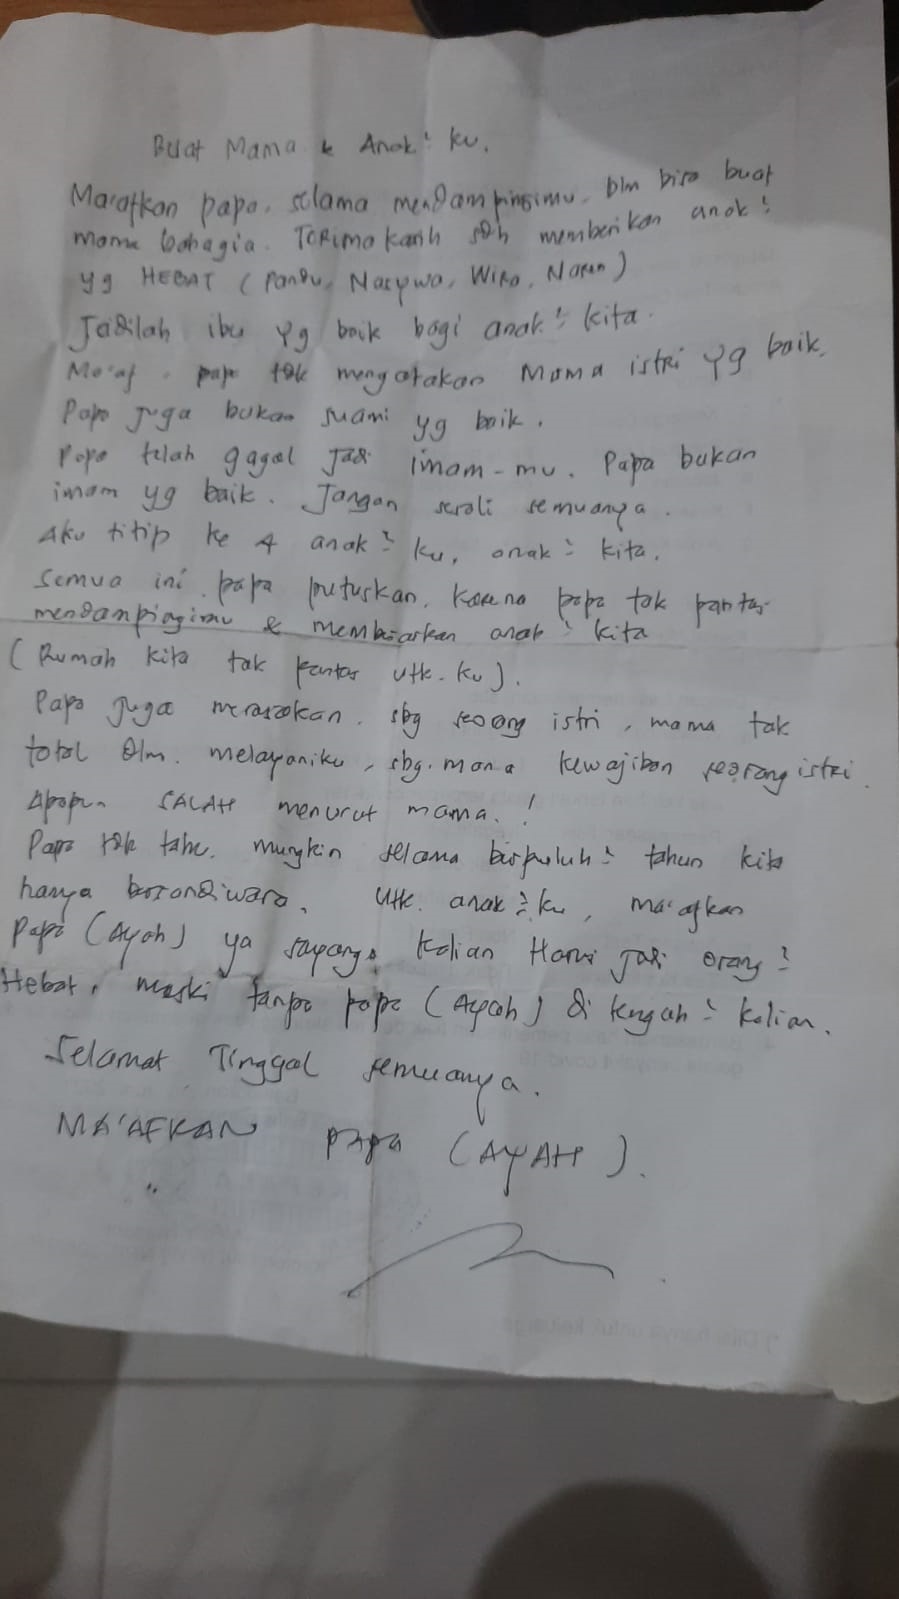 Buat Mama & Anak² ku.
Ma'afkan papa, selama mendampingimu. blm bisa buat
mama bahagia. Terima kasih sdh memberikan anak²
yg HEBAT (Pandu, Nasywa, Wira, Naren)
Jadilah ibu yg baik bagi anak² kita.
Ma'af, papa tdk mengatakan Mama istri yg baik.
Papa juga bukan suami yg baik.
Papa telah gagal jadi imam-mu. Papa bukan
imam yg baik. Jangan semuanya.
Aku titip ke 4 anak² ku, anak² kita.
Semua ini papa putuskan, karena papa tak pantas
mendampingimu & anak² kita
(Rumah kita tak pantas utk. ku).
Papa juga merasakan, sbg seorang istri, mama tak
total dlm. melayaniku, sbg. mana kewajiban seorang istri.
Apapun SALAH menurut mama. !
Papa tdk tahu. mungkin selama berpuluh² tahun kita
hanya bersandiwara. Utk. anak² ku, ma'afkan
Papa (Ayah) ya sayang. Kalian Harus jadi orang²
Hebat, meski tanpa papa (Ayah) di tengah² kalian.
Selamat Tinggal semuanya.
MA'AFKAN PAPA (AYAH).